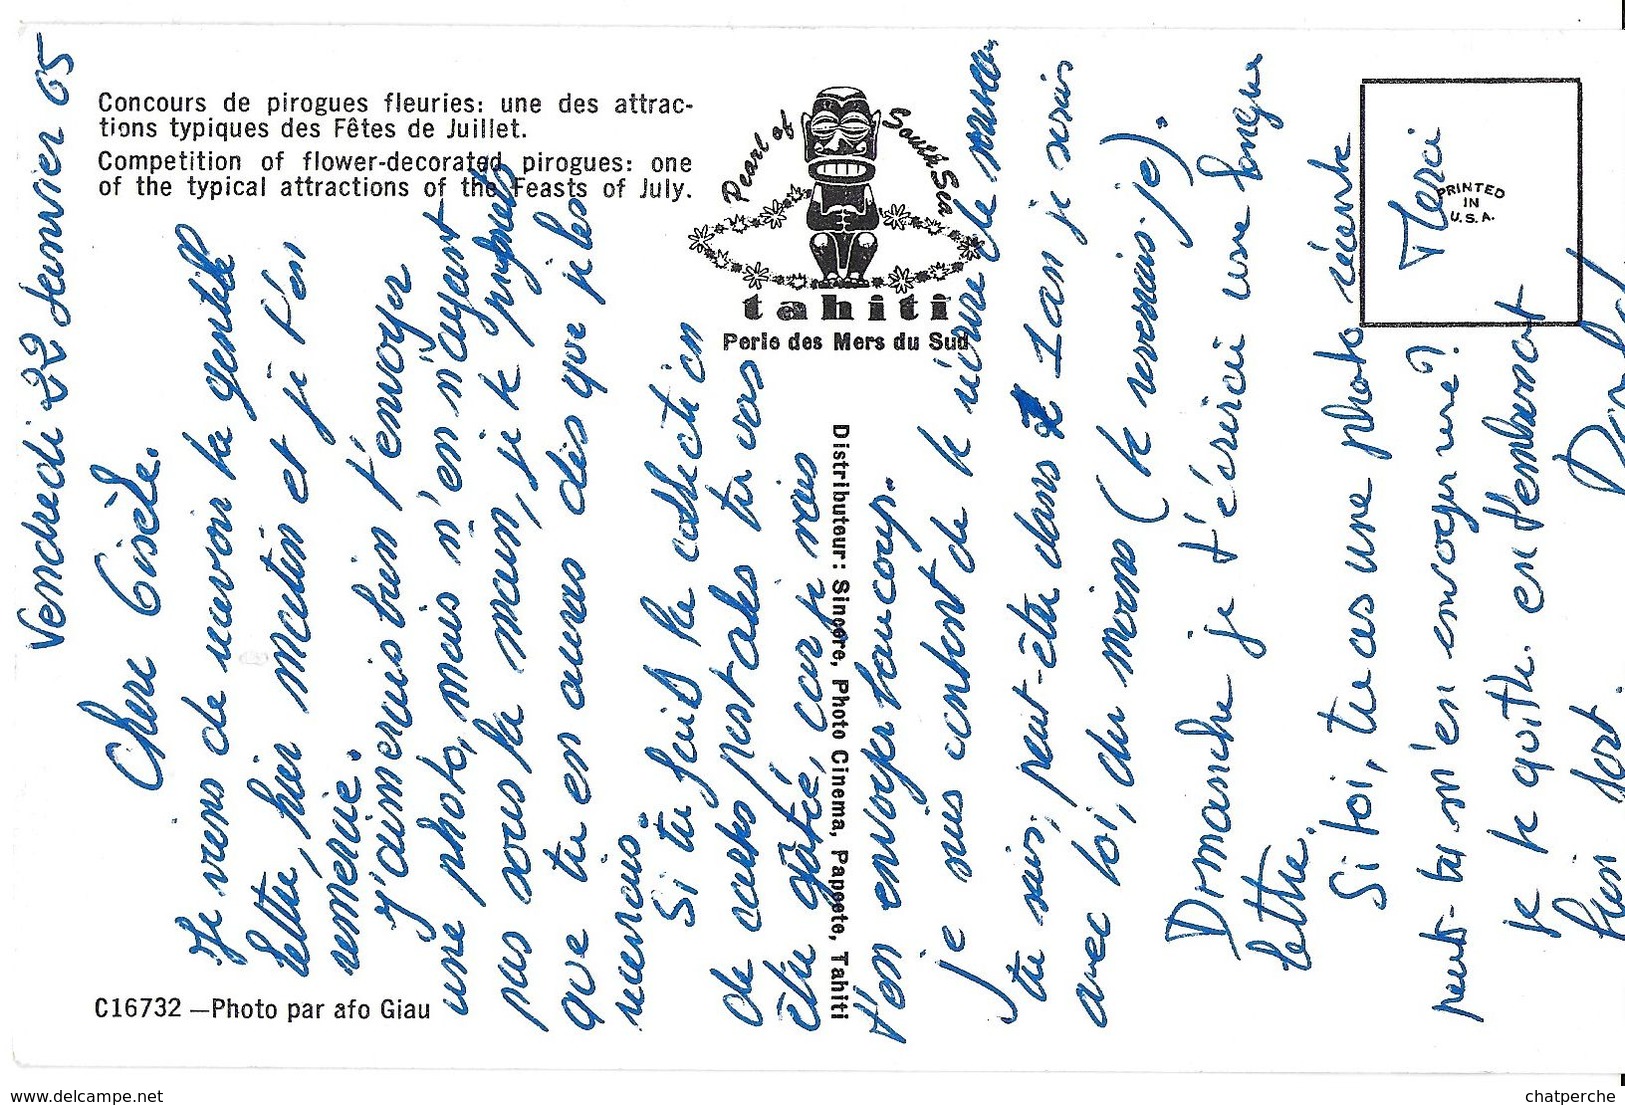 Concours de pirogues fleuries: une des attrac-
tions typiques des Fêtes de Juillet.
Competition of flower-decorated pirogues: one
of the typical attractions of the Feasts of July.
Pearl of South Sea
tahiti
Perle des Mers du Sud
PRINTED
IN
U.S.A.
Distributeur: Sincère, Photo Cinema, Papeete, Tahiti
C16732 —Photo par afo Giau
Vendredi 22 Janvier 65
Chère Gisèle.
Je viens de recevoir ta gentille
lettre, hier matin et je t'en
remercie.
J'aimerais bien t'envoyer
une photo, mais n'en n'ayant
pas sous la main, je te promets
que tu en auras dès que je les
recevrais.
Si tu fais la collection
de cartes postales tu vas
être gâtée, car je vais
t'en envoyer beaucoup.
je suis content de te
tu sais, peut-être dans 1 an je serais
avec toi, du moins (te reverrais-je).
Dimanche je t'écrirai une longue
lettre.
Si toi, tu as une photo récente
peut-tu m'en envoyer une?
Merci
je te quitte en t'embrassant
bien fort.
www.delcampe.net
chatperche